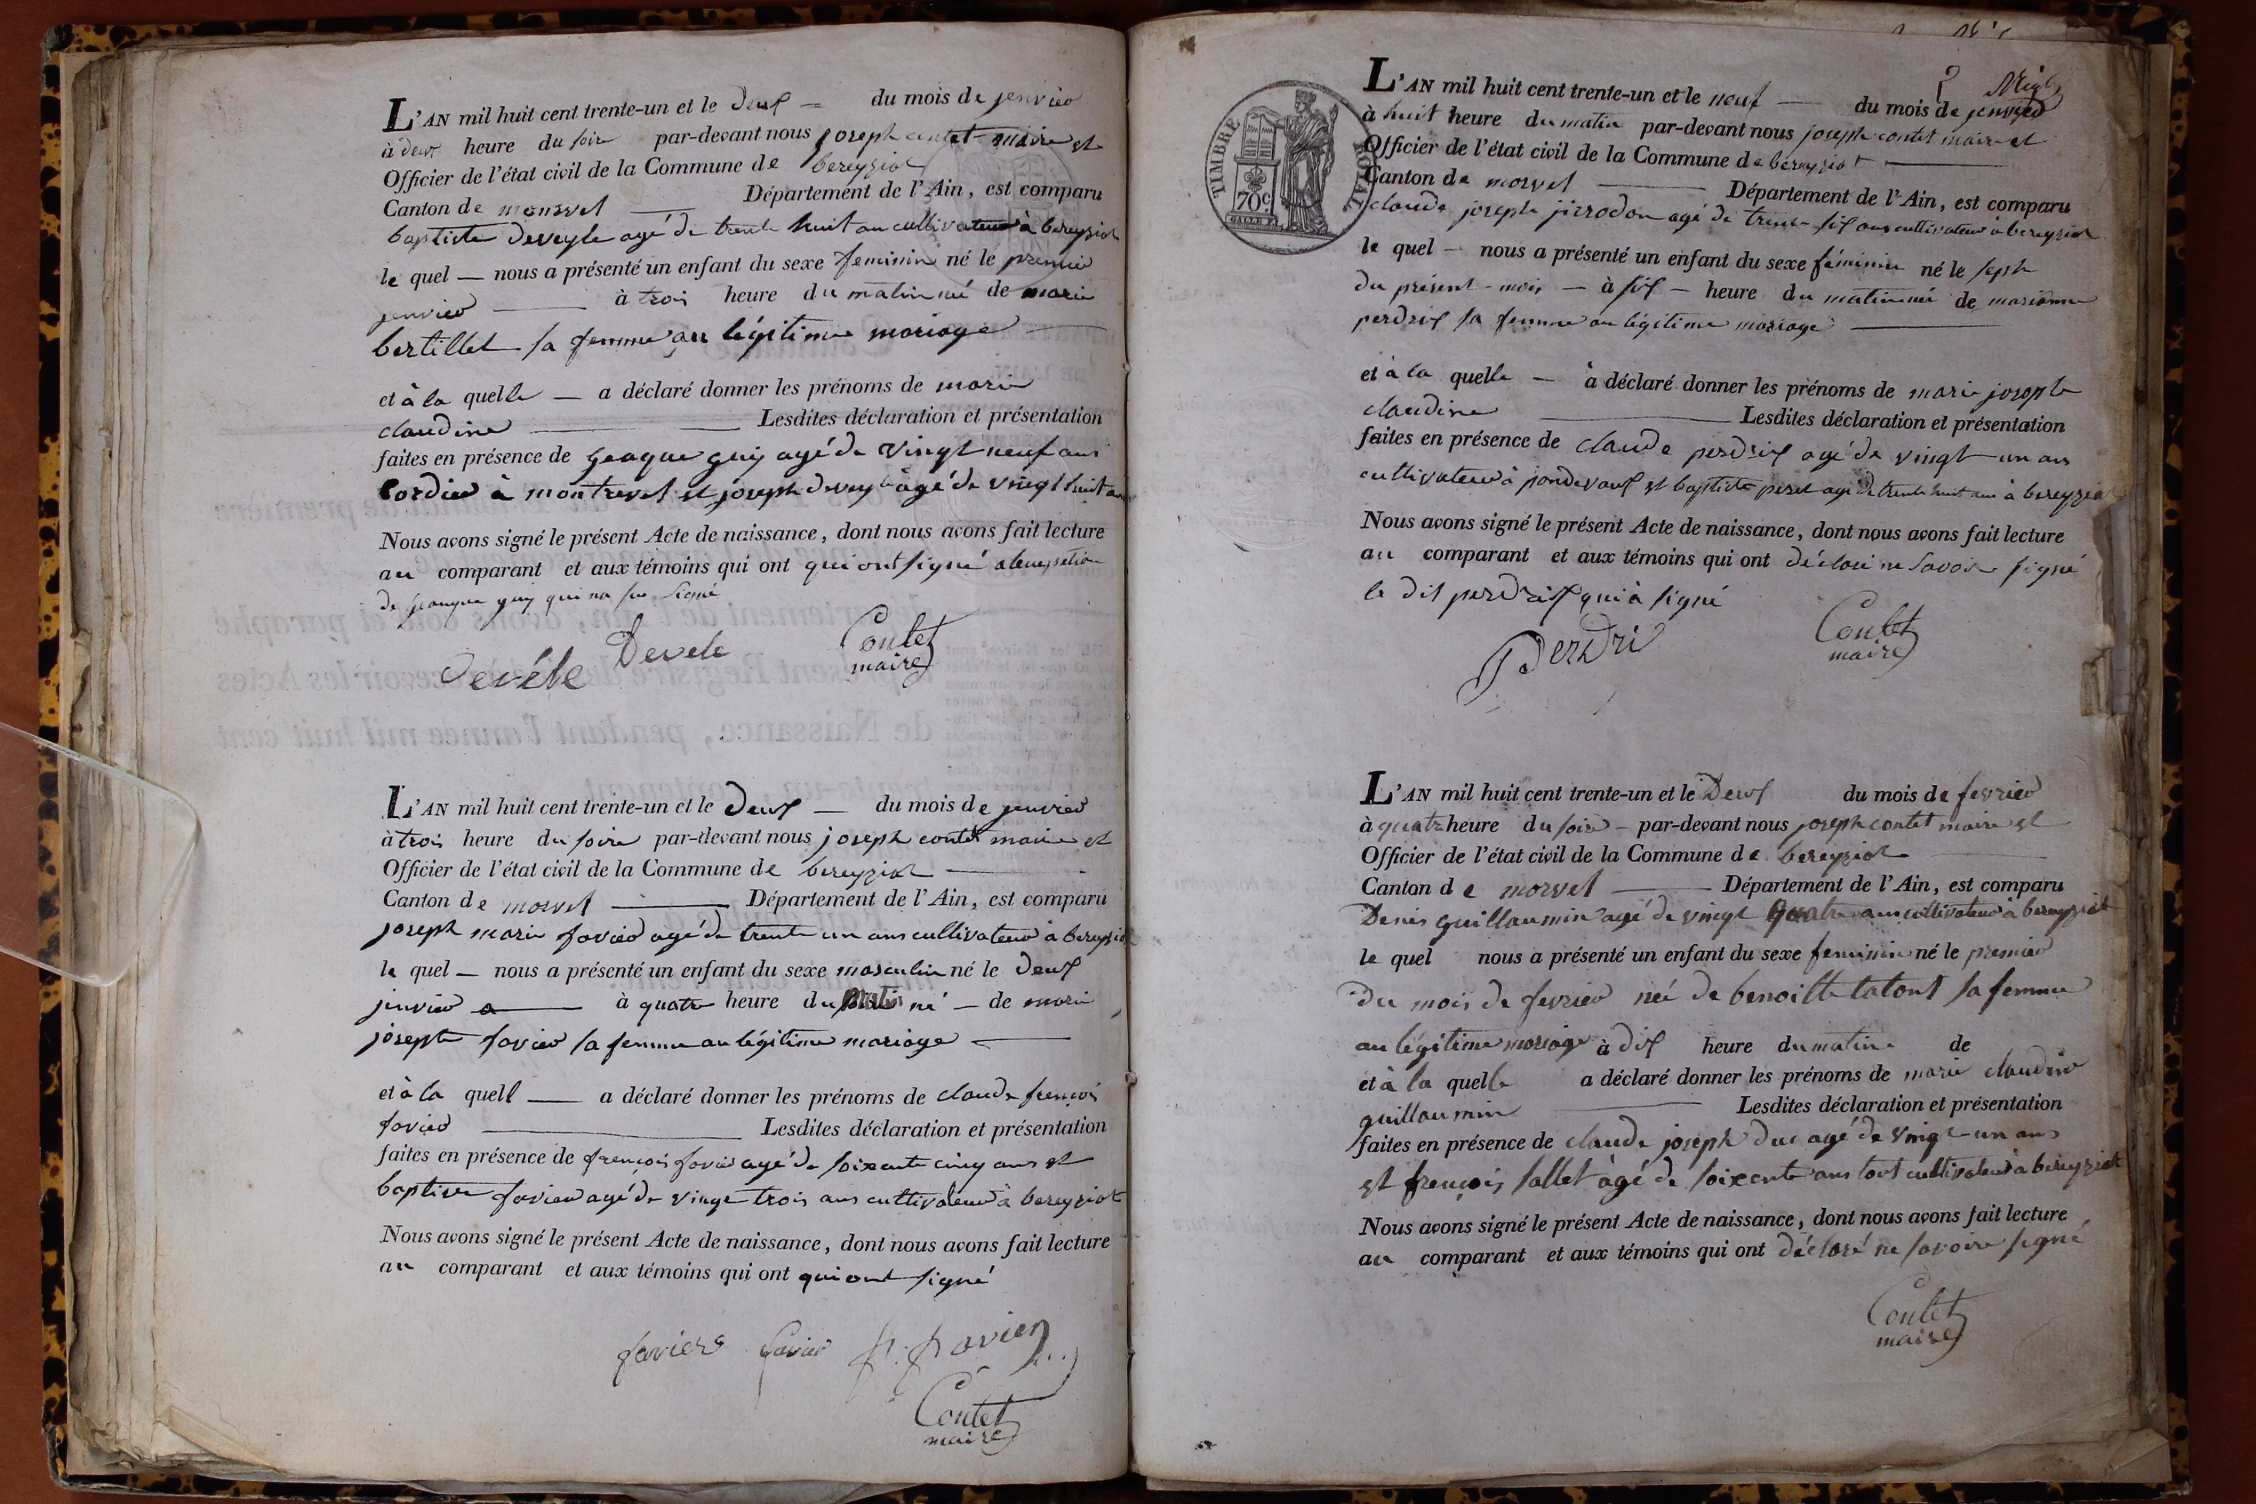 L'AN mil huit cent trente-un et le deux du mois de jenvier
à deux heure du soire par-devant nous joseph contet maire et
Officier de l'état civil de la Commune de bereyziat
Canton de monrvel Département de l'Ain, est comparu
baptiste deveyle agé de trente huit an cultivateur à bereyziat
le quel nous a présenté un enfant du sexe feminin né le premier
jenvier à trois heure du matin né de marie
bertillet sa femme an légitime mariage
et à la quelle a déclaré donner les prénoms de marie
claudine Lesdites déclaration et présentation
faites en présence de geaque guy agé de vingt neuf ans
Cordier à montrevel et joseph deveyle âgé de vingt huit an
Nous avons signé le présent Acte de naissance, dont nous avons fait lecture
au comparant et aux témoins qui ont qui ont signé
de geaque guy qui na su signé
Devéle Devele Contet
maire
L'AN mil huit cent trente-un et le deux du mois de jenvier
à trois heure du soire par-devant nous joseph contet maire et
Officier de l'état civil de la Commune de bereyziat
Canton de morvel Département de l'Ain, est comparu
joseph marie favier agé de trente un ans cultivateur à bereyziat
le quel nous a présenté un enfant du sexe masculin né le deux
jenvier à quatre heure du matin né de marie
josepte favier sa femme an légitime mariage
et à la quell a déclaré donner les prénoms de claude françois
favier Lesdites déclaration et présentation
faites en présence de françois favier agé de soixente cinq ans et
baptiste favier agé de vingt trois ans cultivateur à bereyziat
Nous avons signé le présent Acte de naissance, dont nous avons fait lecture
au comparant et aux témoins qui ont qui ont signé
faviers favier f. favier
Contet
maire
2
TIMBRE ROYAL
70c
L'AN mil huit cent trente-un et le neuf du mois de jenvier
à huit heure du matin par-devant nous joseph contet maire et
Officier de l'état civil de la Commune de bereyziat
Canton de morvel Département de l'Ain, est comparu
claude joseph pirrodon agé de trente six ans cultivateur à bereyziat
le quel nous a présenté un enfant du sexe féminin né le sept
du présent mois à six heure du matin né de marianne
perdrix sa femme an légitime mariage
et à la quelle a déclaré donner les prénoms de marie josepte
claudine Lesdites déclaration et présentation
faites en présence de claude perdrix agé de vingt un ans
cultivateur à jondevaux et baptiste peret agé de trente huit ans à bereyziat
Nous avons signé le présent Acte de naissance, dont nous avons fait lecture
au comparant et aux témoins qui ont déclaré ne savoir signé
le dit perdrix qui à signé
Perdri Contet
maire
L'AN mil huit cent trente-un et le Deux du mois de fevrier
à quatre heure du soire par-devant nous joseph contet maire et
Officier de l'état civil de la Commune de bereyziat
Canton de morvel Département de l'Ain, est comparu
Denis guillaumin agé de vingt quatre ans cultivateur à bereyziat
le quel nous a présenté un enfant du sexe feminin né le premier
du mois de fevrier née de benoitte tatout sa femme
an légitime mariage à dix heure du matin de
et à la quelle a déclaré donner les prénoms de marie claudine
guillaumin Lesdites déclaration et présentation
faites en présence de claude joseph duc agé de vingt un ans
et françois sallet âgé de soixente ans tout cultivateur à bereyziat
Nous avons signé le présent Acte de naissance, dont nous avons fait lecture
au comparant et aux témoins qui ont déclaré ne savoire signé
Contet
maire